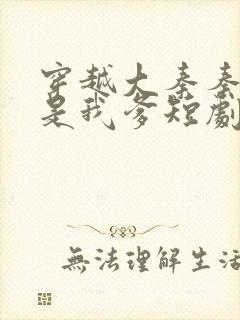 穿越大秦秦
是我爹短劇
無法理解生活